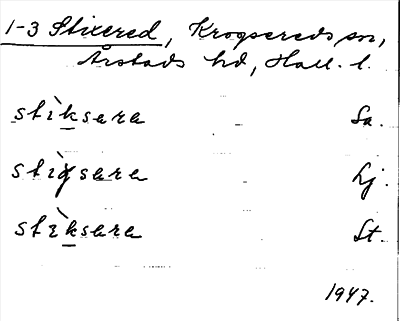 1-3 Stixered, Krogsereds sn,
Årstads hd, Hall. l.
stìksara Sa.
stìgsara Lj.
stìksara St.
1947.